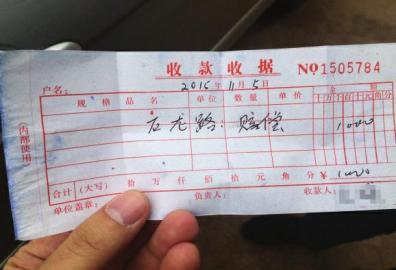 收款收据 NO 1505784
户名: 2015年11月5日
规格品名 单位 数量 单价 金额
十万千百十元角分
石龙路: 赔偿 1000
合计(大写) 拾 万 仟 佰 拾 元 角 分 ¥ 1000
单位盖章: 负责人: 收款人:
(内部使用)